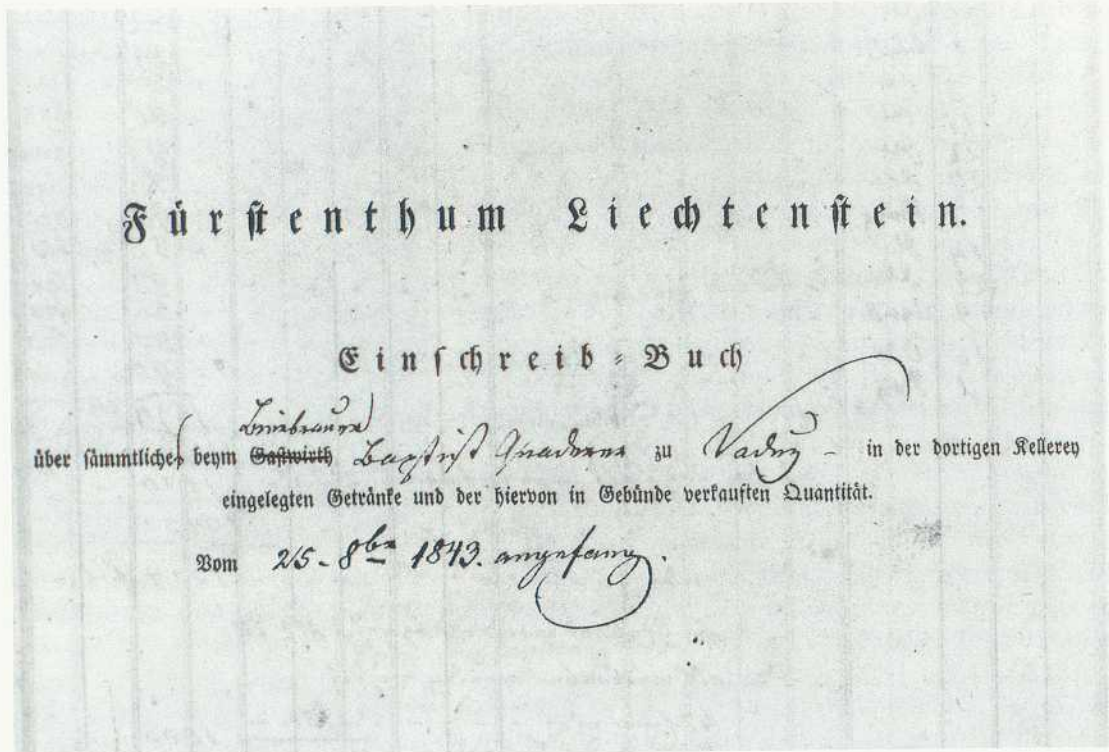 Fürstenthum Liechtenstein.
Einschreib-Buch
Bierbrauer
über sämmtliche beym Gastwirth Baptist Quaderer zu Vaduz - in der dortigen Kellerey
eingelegten Getränke und der hiervon in Gebünde verkauften Quantität.
Vom 25. 8br 1843. angefang.